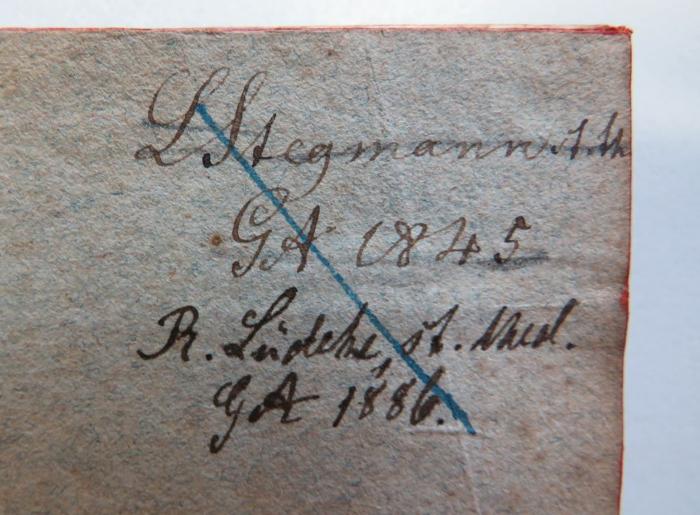 L Stegmann st. th
GA 1845
R. Lüdeke, st. Med.
GA 1886.